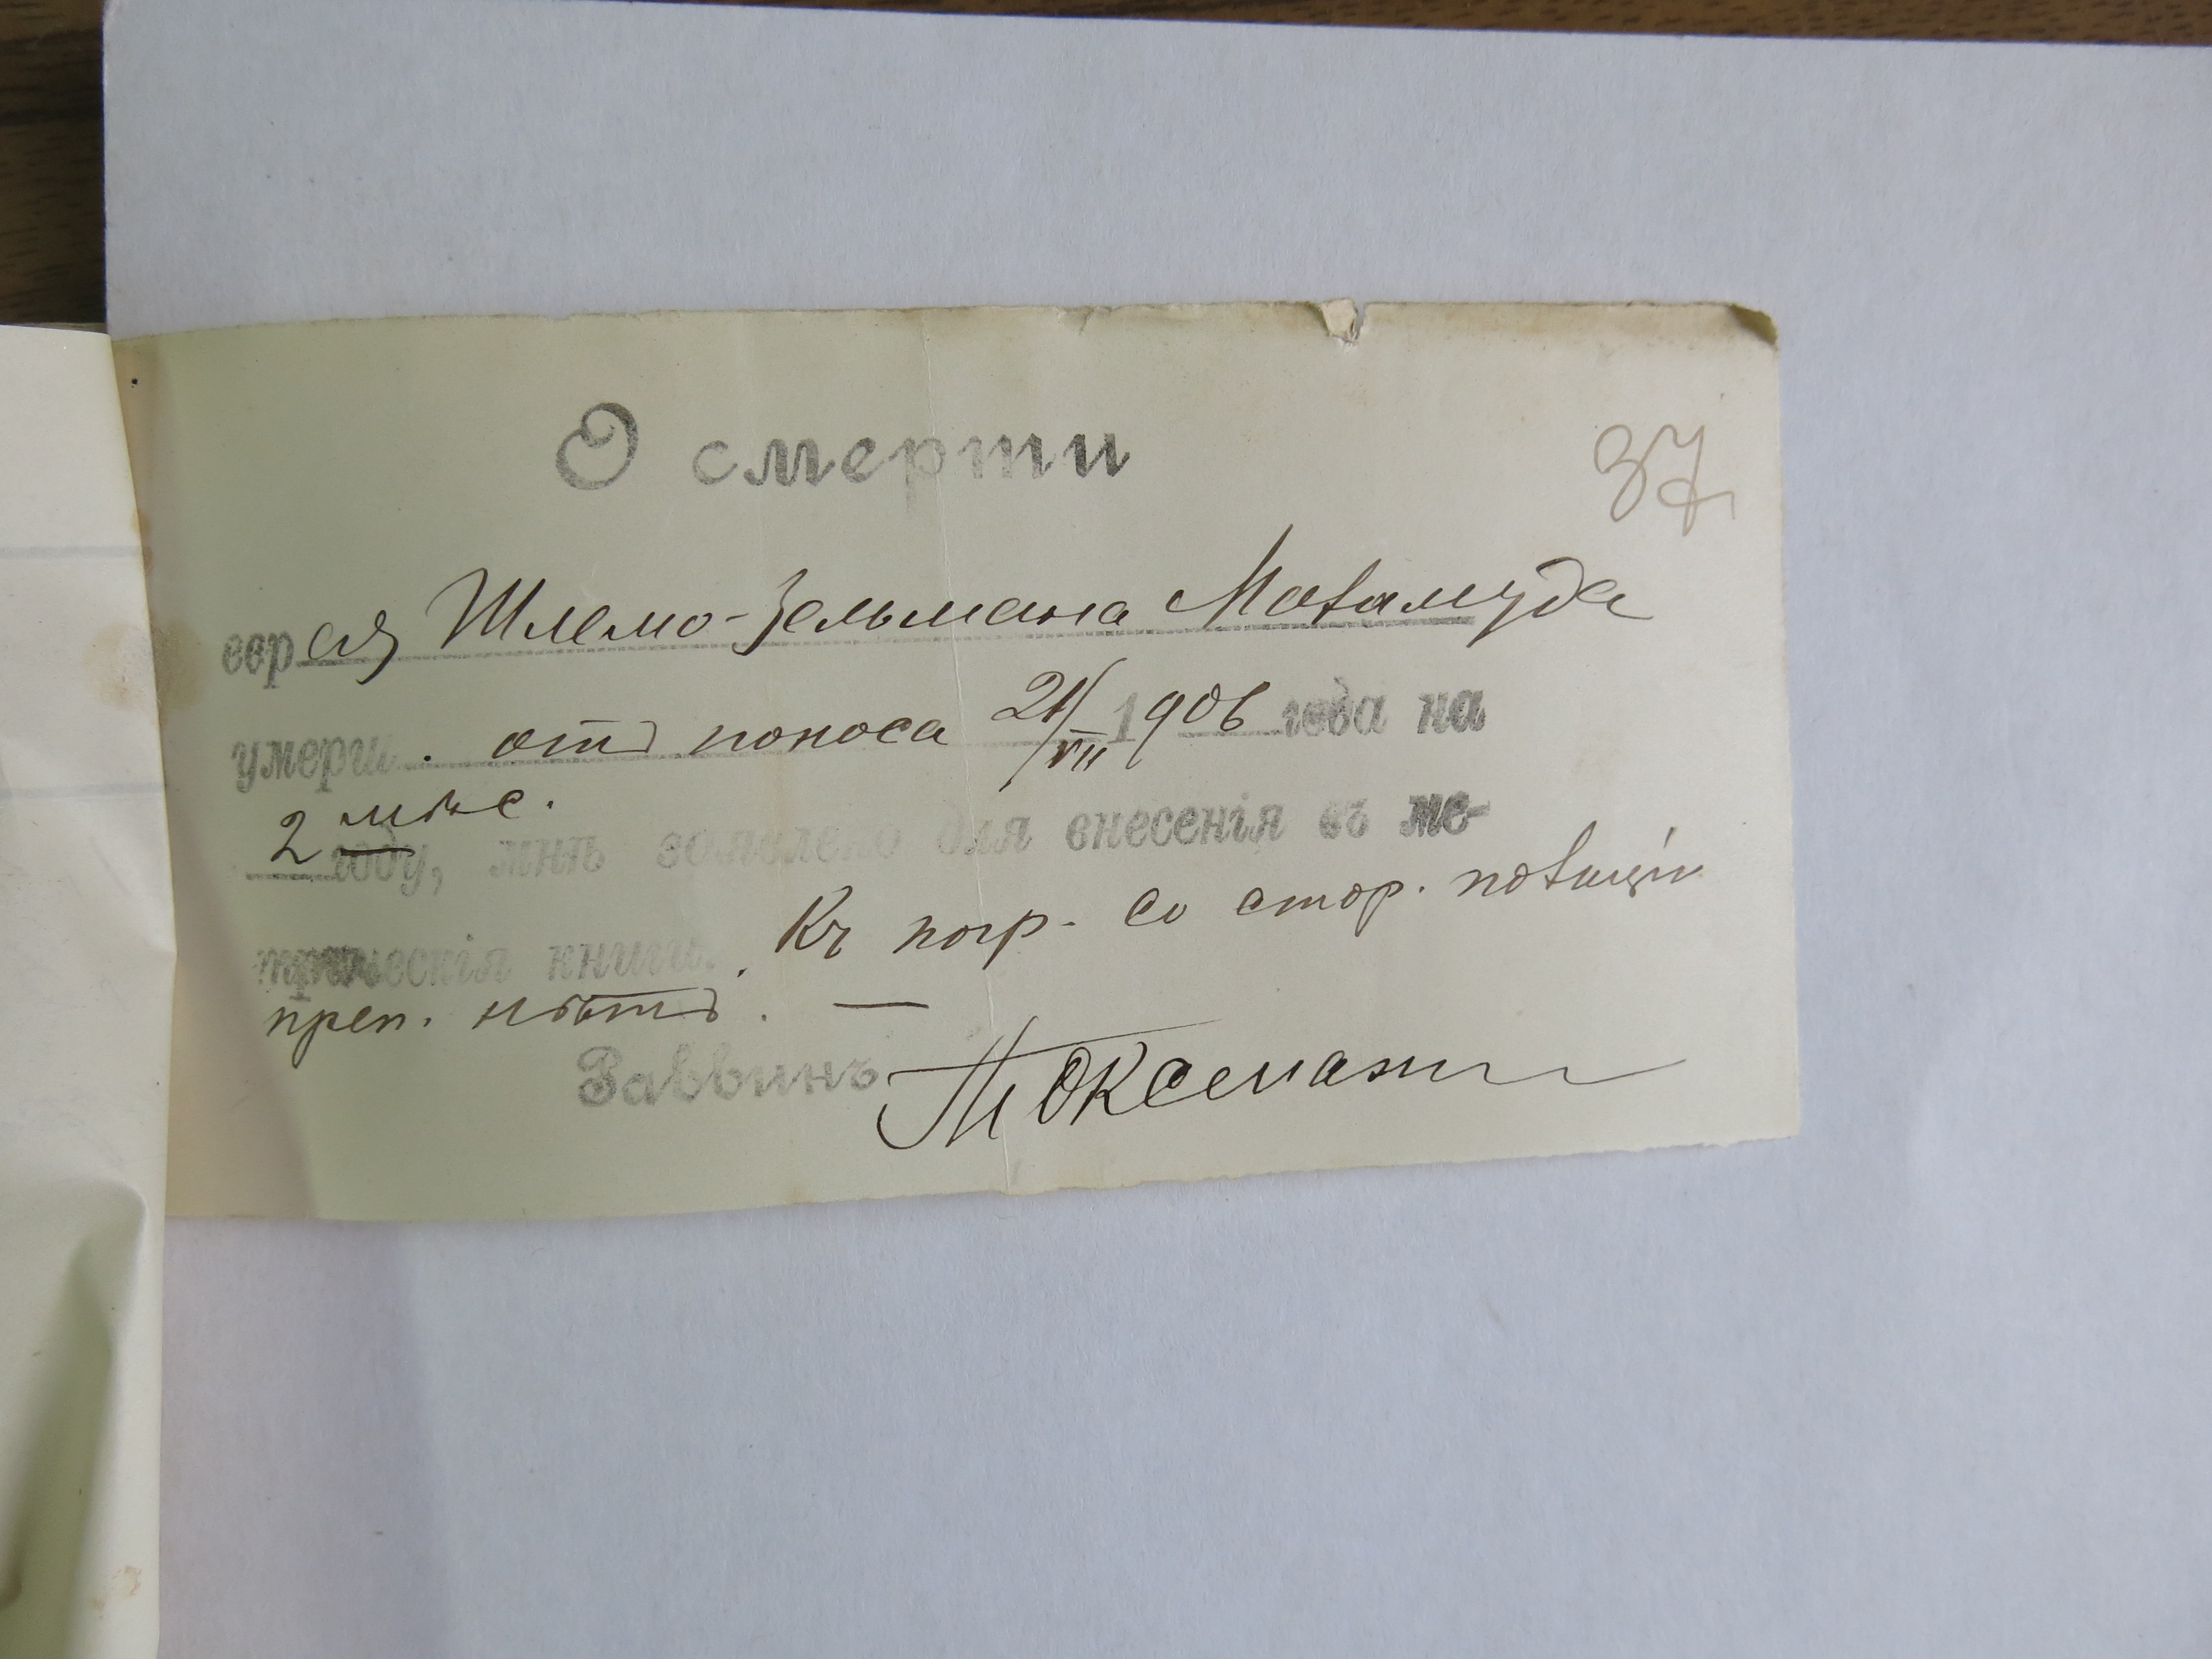 37
О смерти
еврея Шлемо-Зельмана
умерш. отъ поноса 21/VII 1906 года на
2 мѣс.
году, мнѣ заявлено для внесенія въ ме-
трическія книги. Къ погр. со стор. полиціи
преп. нѣтъ. —
Раввинъ